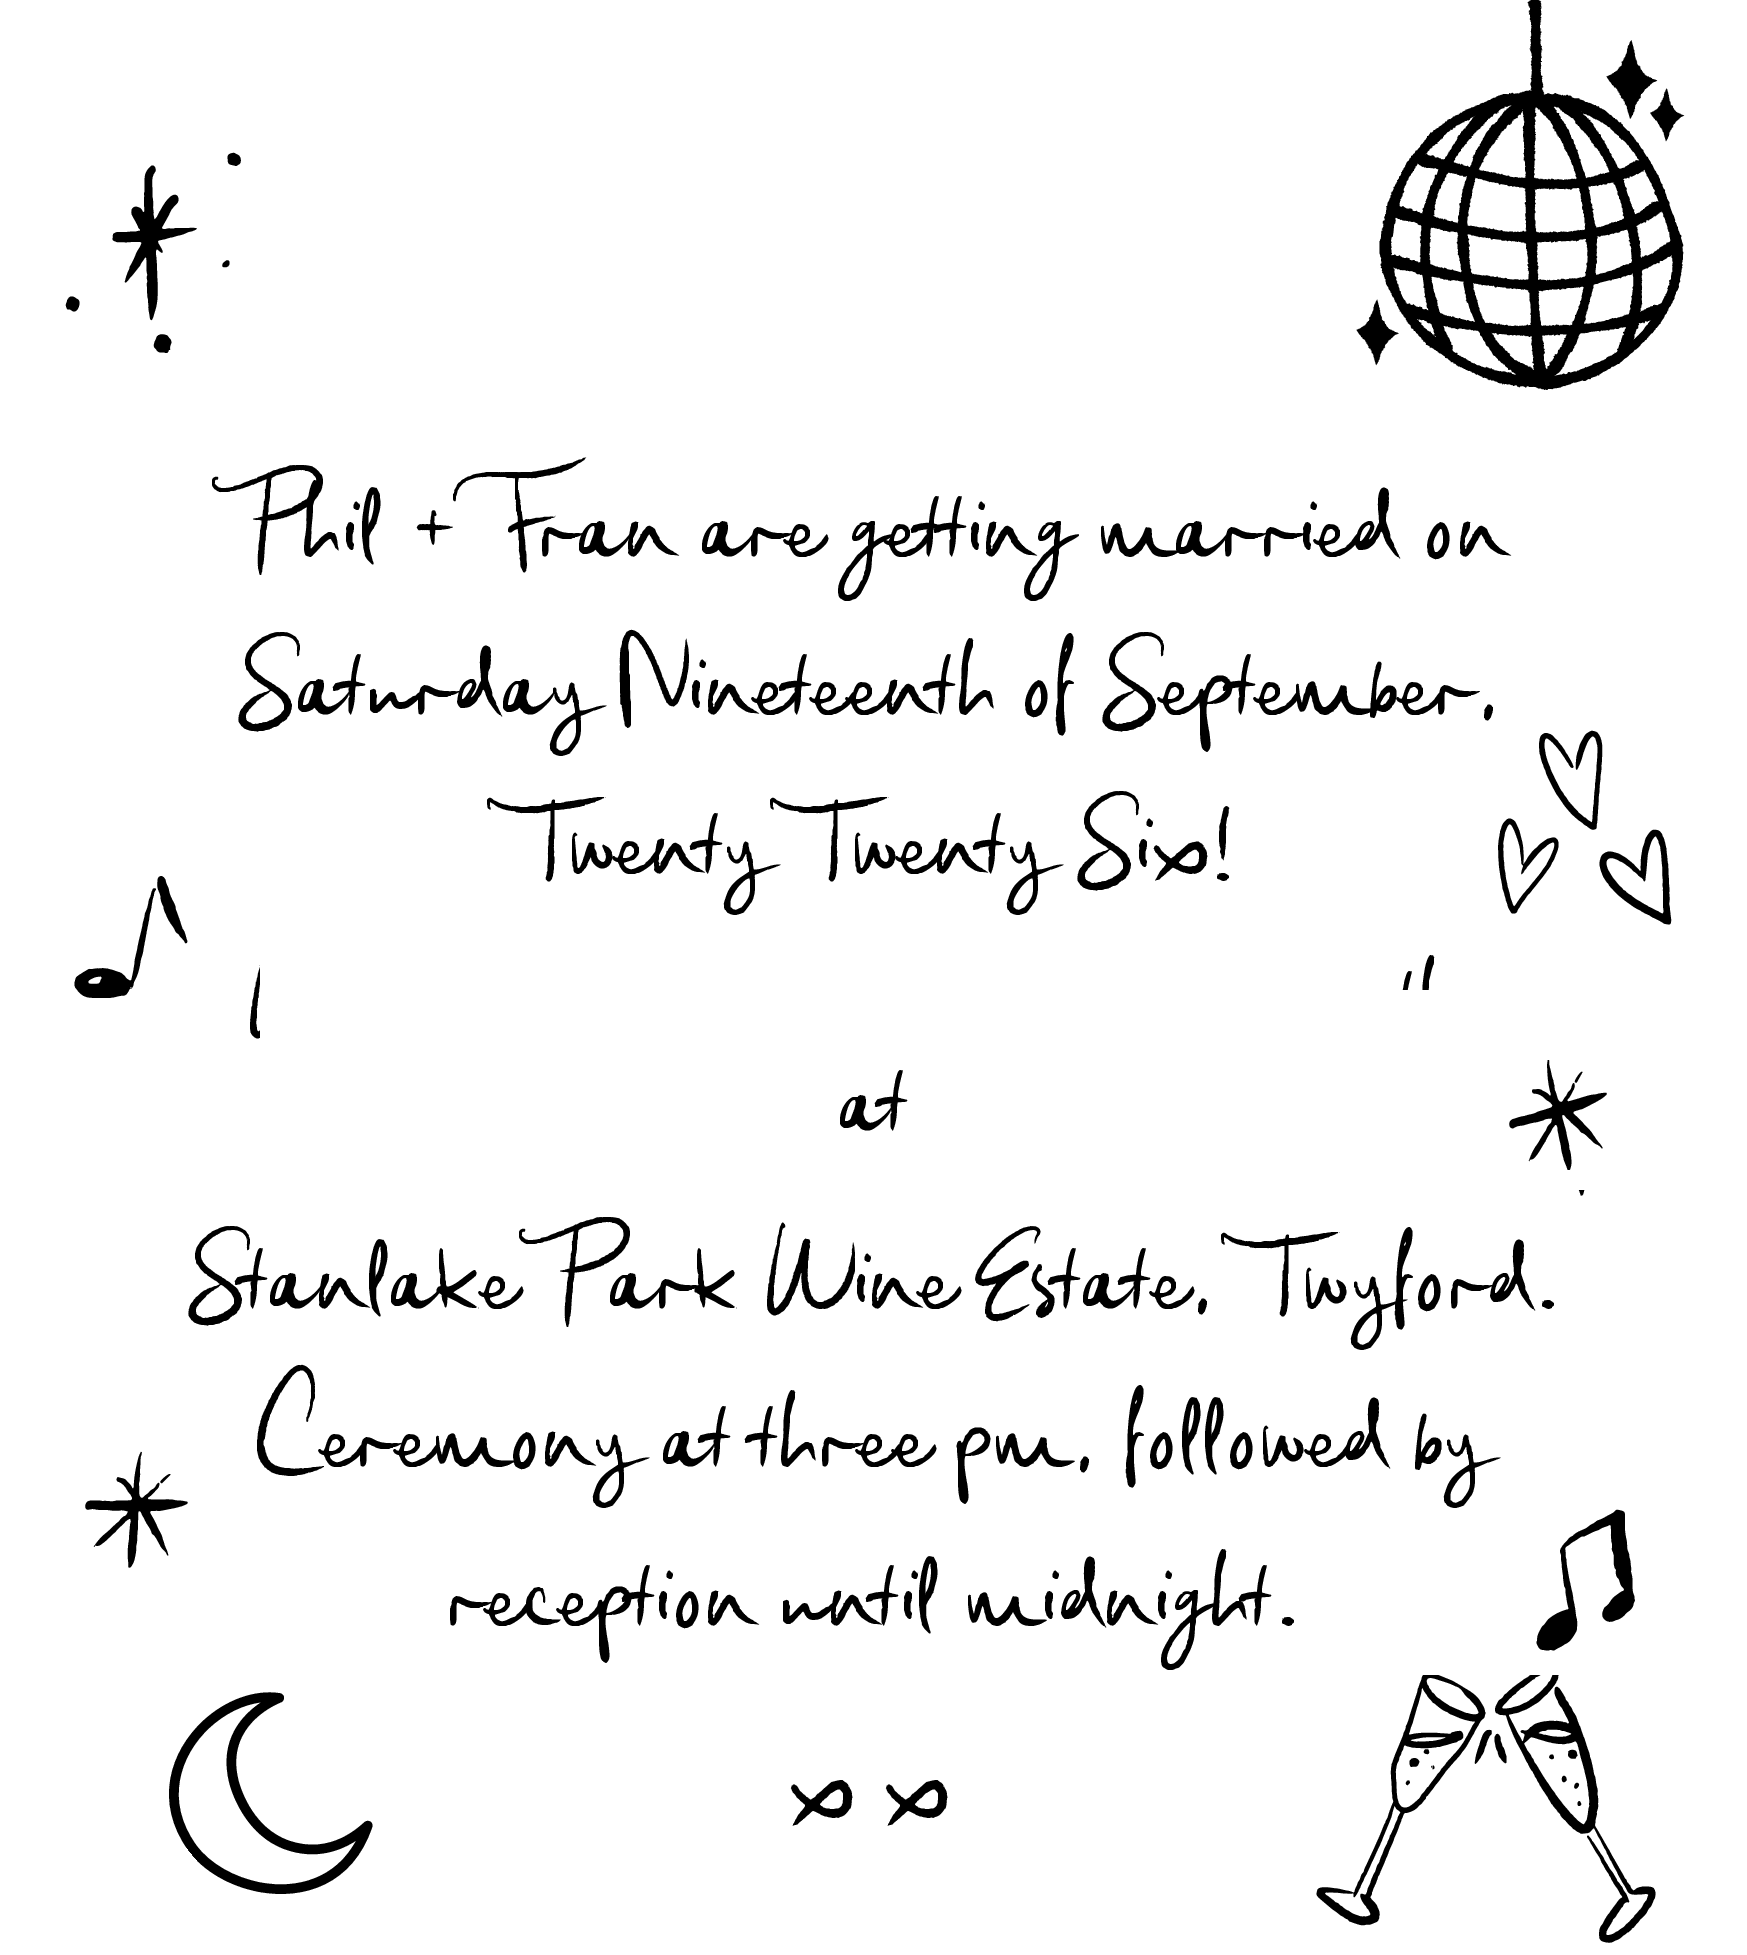 Phil + Fran are getting married on
Saturday Nineteenth of September.
Twenty Twenty Six!
at
Stanlake Park Wine Estate. Twyford.
Ceremony at three pm. followed by
reception until midnight.
x x